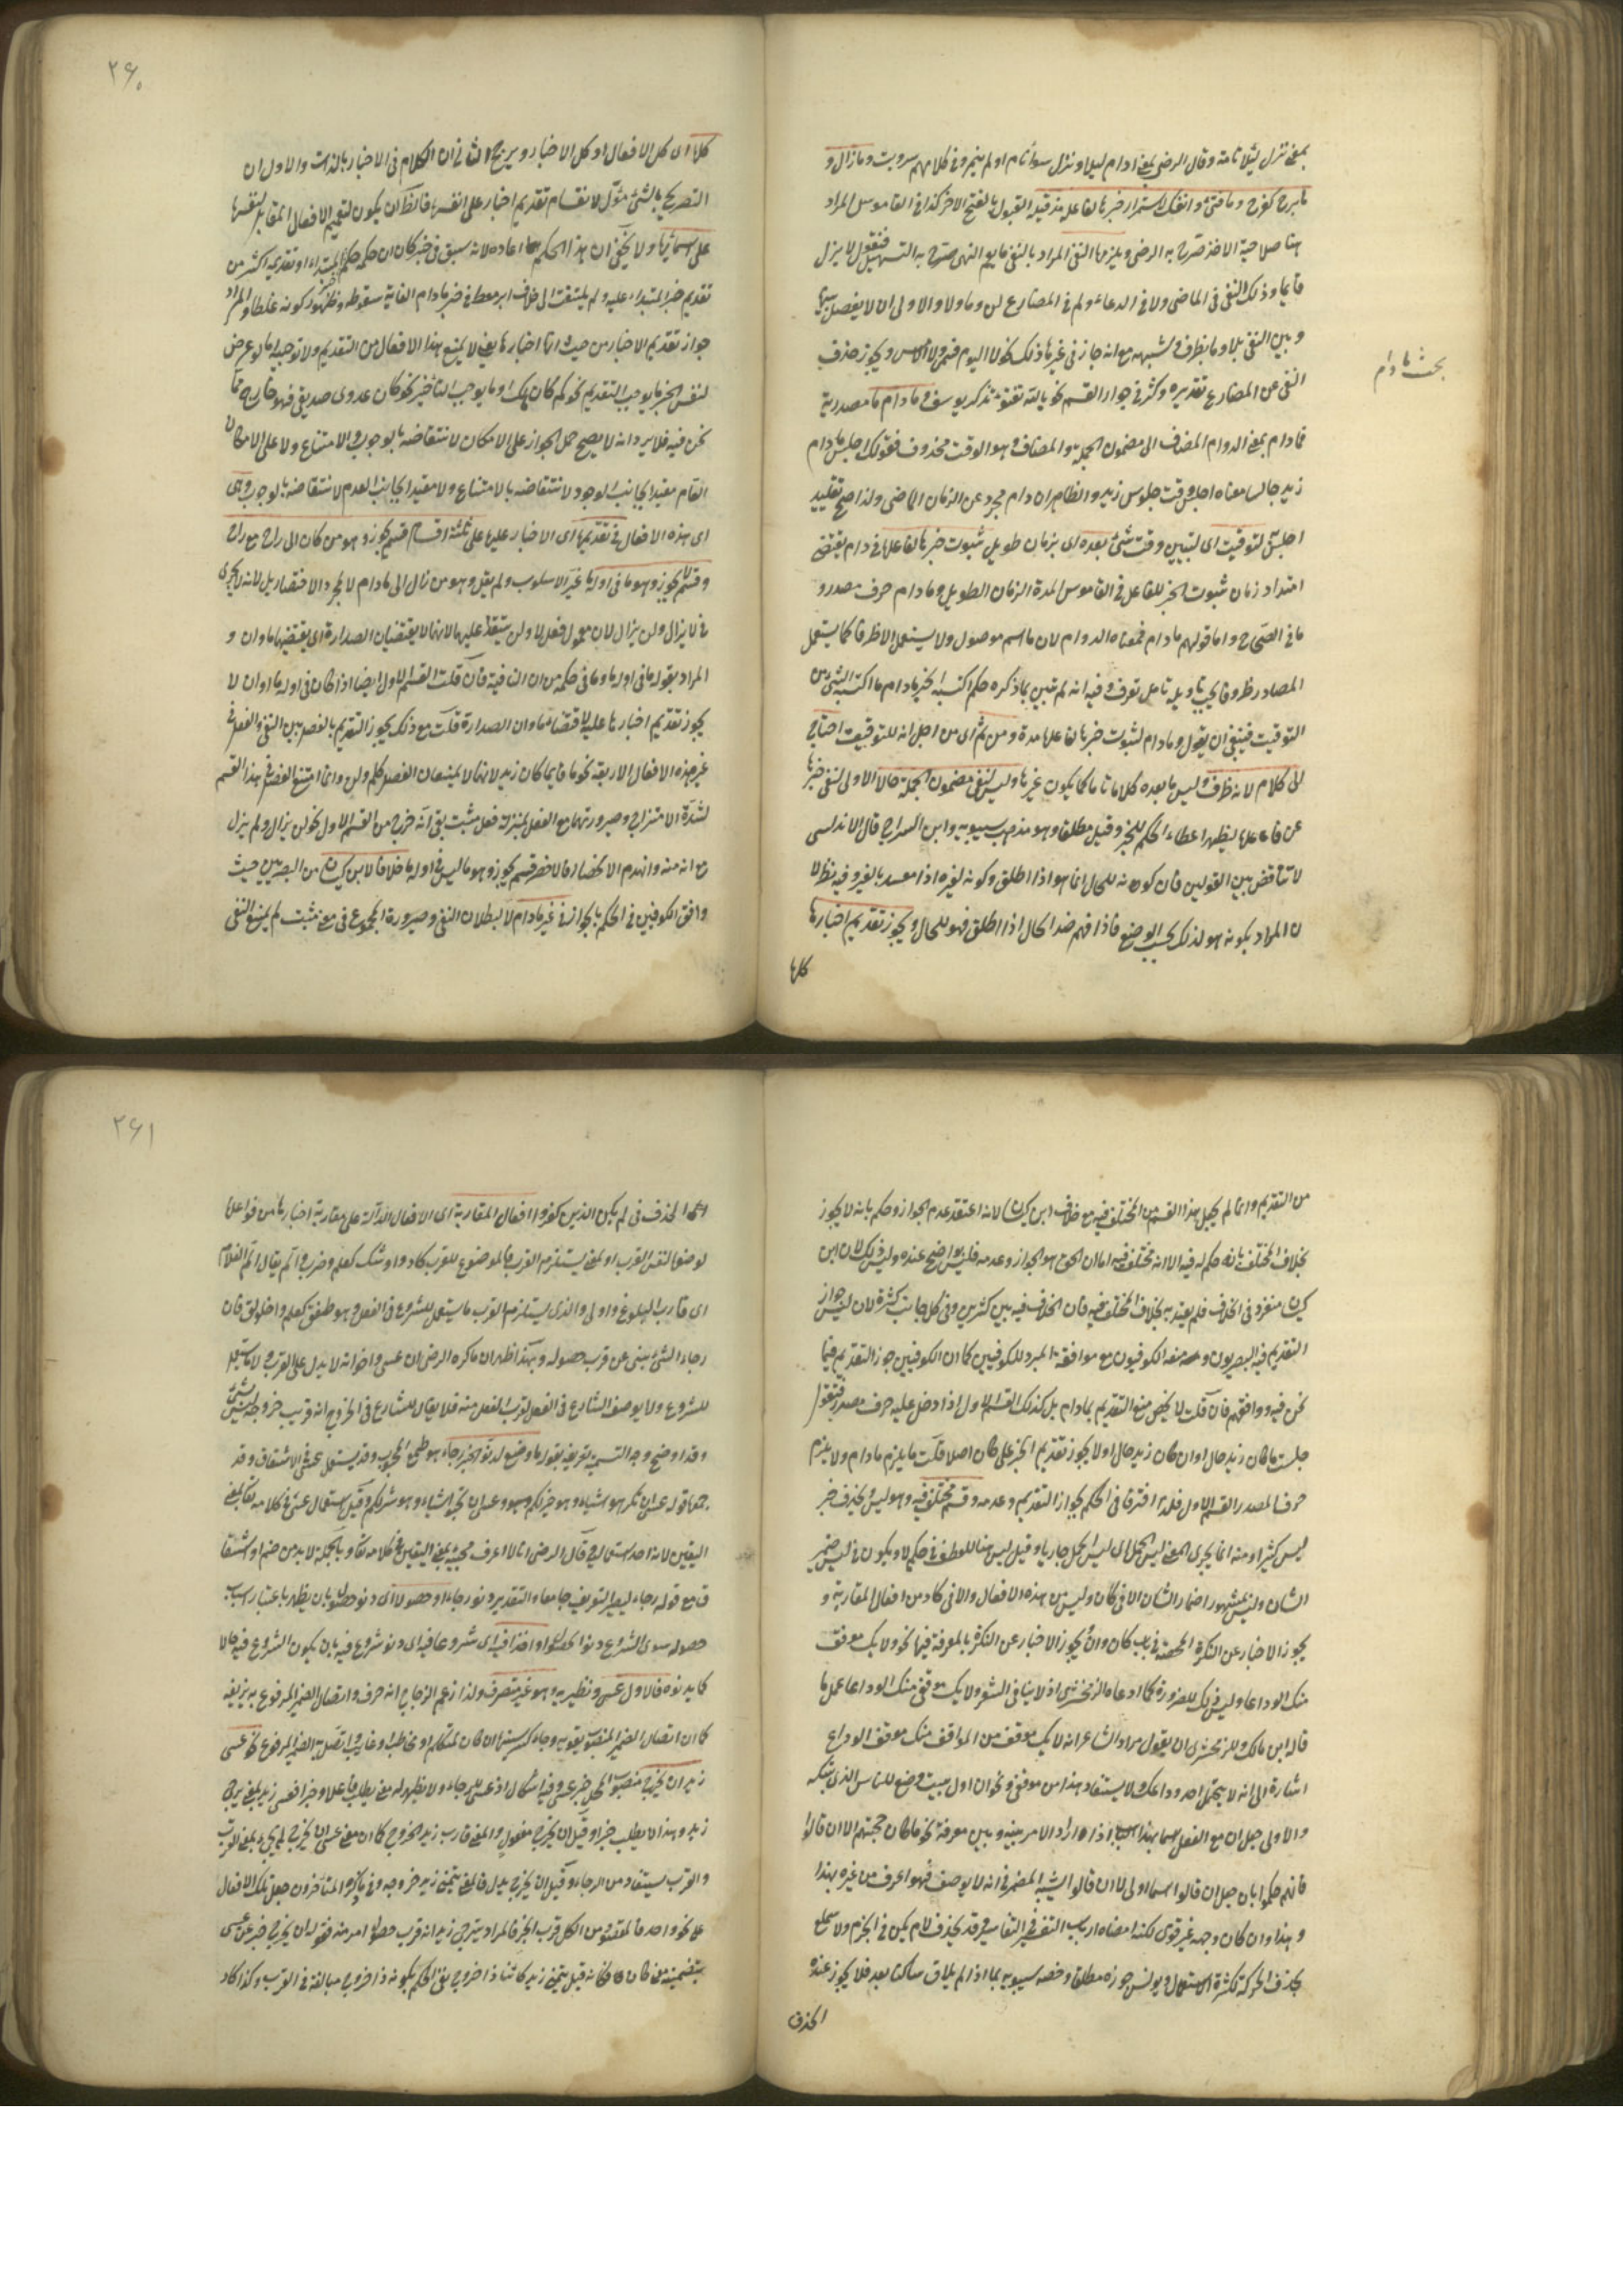 بمعنى نزل ليلا نامة وقال الرضى بمعنى ادام ليلا ونزل سواء نام او لم ينم وفى كلامهم بيوت وما زال و
ما برح كفرح وما فتئ وما انفك لاستمرار خبرها لفاعلها مذ قبله القبول بالفتح الاخذ كذا فى القاموس المراد
هنا صلاحية الاخذ صرح به الرضى ويلزمها النفى المراد بالنفى ما يعم النهى صرح به التسهيل فنقول لا يزل
قايما وذلك النفى فى الماضى ولا فى الدعاء ولم فى المضارع لن وما ولا والاولى ان لا يفصل بينها
و بين النفى بلا وما بظرف وشبهه مع انه جاز فى غيرها ذلك نحو لا اليوم ولا امس ويجوز حذف
النفى من المضارع بتقديره وكثر فى جواب القسم نحو تالله تفتؤ تذكر يوسف وما دام ما مصدرية
فما دام بمعنى الدوام المضاف الى مضمون الجملة والمضاف هو الوقت محذوف فقولك اجلس ما دام
زيد جالسا معناه اجلس وقت جلوس زيد والظاهر ان دام مجرد عن الزمان الماضى ولذا صح تقييد
اجلس لتوقيت اى لتبيين وقت شئ بعده اى بزمان طويل ثبوت خبرها لفاعلها فى دام يقتضى
امتداد زمان ثبوت الخبر للفاعل فى القاموس المدة الزمان الطويل وما دام حرف مصدر و
ما فى الصحاح واما قولهم ما دام فمعناه الدوام لان ما اسم موصول ولا يستعمل الا ظرفا كما يستعمل
المصادر ظروفا يجب تاويله تامل تعرف وفيه انه لم تبين بما ذكره حكم اكتسبه الخبر ما دام ما اكتسبه الشئ من
التوقيت فينبغى ان يقول وما دام لثبوت خبرها لفاعلها مدة ومن ثم اى من اجل انه للتوقيت احتاج
الى كلام لانه ظرف وليس ما بعده كلاما تاما كما يكون غيرها وليس لنفى مضمون الجملة حالا الاولى لنفى خبرها
عن فاعلها ليظهر اعطاء الحكم للخبر وقيل مطلقا وهو مذهب سيبويه وابن السراج قال الاندلسى
لا تناقض بين القولين فان كونه للحال انما هو اذا اطلق وكونه لغيره اذا قيد بالغير وفيه نظر لا
ن المراد بكونه هو لذلك بحسب الوضع فاذا فهم ضد الحال اذا اطلق فهو للحال ويجوز تقديم اخبارها
كلها
بحث ما دام
۲۶۰
كلها اى كل الافعال او كل الاخبار ويرجح الثانى ان الكلام فى الاخبار بالذات والاول ان
التصريح بالشئ مؤل لانقسام تقديم اخبار على انفسها فالظ ان يكون لتعميم الافعال المقابل لنفسها
على اسمائها ولا يخفى ان هذا الحكم اعاده لانه سبق فى خبر كان ان حكمه حكم خبر المبتدا او تقديمه اكثر من
تقديم خبر المبتداء عليه ولم يلتفت الى خلاف ابن معط فى خبر ما دام لغاية سقوطه وظهور كونه غلطا والمراد
جواز تقديم الاخبار من حيث انها اخبارها يعنى لا يمنع هذا الافعال من التقديم ولا توجبه اما لو عرض
لنفس الخبر ما يوجب التقديم نحو كم كان مالك او ما يوجب التاخير نحو كان عدوى صديقى فهو خارج عما
نحن فيه فلا يرد انه لا يصح حمل الجواز على الامكان لانتقاضه بالوجوب والامتناع ولا على الامكان
العام مقيدا بجانب الوجود لانتقاضه بالامتناع ولا مقيدا بجانب العدم لانتقاضه بالوجوب وهى
اى هذه الافعال فى تقديمها اى الاخبار عليها على ثلثة اقسام قسم يجوز وهو من كان الى راح مع راح
وقسم لا يجوز وهو ما فى اوله ما غير الاسلوب ولم يقل وهو من زال الى ما دام لا لمجرد الاختصار بل لانه لا يجرى
فى لا يزال ولن يزال لان معمول فعل لا ولن يتقدم عليهما لانهما لا يقتضيان الصدارة اى يقتضيها ما وان و
المراد بقوله ما فى اوله ما وما فى حكمه من ان النافية فان قلت القسم الاول ايضا اذا كان فى اوله ما او ان لا
يجوز تقديم اخبارها عليه لاقتضاء ما وان الصدارة قلت مع ذلك يجوز التقديم بالفصل بين النفى والفعل فى
غير هذه الافعال الاربعة نحو ما قايما كان زيد لانهما لا يمنعان الفصل كلم ولن وانما امتنع الفصل فى هذا القسم
لشدة الامتزاج وصيرورتها مع الفعل بمنزلة فعل مثبت بقى انه خرج من القسم الاول نحو لن يزال ولم يزل
مع انه منه وانهدم الانحصار فالاخصر قسم يجوز وهو ما ليس فى اوله ما خلافا لابن كيسان من البصريين حيث
وافق الكوفيين فى الحكم بالجواز فى غير ما دام لا لبطلان النفى وصيرورة المجموع فى معنى مثبت لم يمنع النفى
من التقديم وانما لم يجعل هذا القسم من المختلف فيه مع خلاف ابن كيسان لانه اعتقد عدم الجواز وحكم بانه لا يجوز
بخلاف المختلف فيه فانه حكم له فيه الا انه مختلف فيه اما ان الحق هو الجواز وعدمه فليس بواضح عنده وليس ذلك لان ابن
كيسان منفرد فى الخلاف فلم يعتد به بخلاف المختلف فيه فان الخلاف فيه بين كثيرين وفى كل جانب كثرة لان ليس جواز
التقديم فيه البصريون ومنعه الكوفيون مع موافقة المبرد للكوفيين كما ان الكوفيين جوز التقديم فيما
نحن فيه ووافقهم فان قلت لا يخص منع التقديم بما دام بل كذلك القسم الاول اذا دخل عليه حرف مصدر فتقول
جلست ما كان زيد جالسا وان كان زيد جالسا ولا يجوز تقديم الخبر على كان اصلا قلت ما يلزم ما دام ولا يلزم
حرف المصدر القسم الاول فلذا افترقا فى الحكم بجواز التقديم وعدمه وقسم مختلف فيه وهو ليس ويحذف خبر
ليس كثيرا ومنه انما يجزى الفتى ليس الجمل اى ليس الجمل جازيا وقيل ليس هنا للعطف فى حكم لا ويكون فى ليس ضمير
الشان وليس بمشهور اضمار الشان الا فى كان وليس من هذه الافعال والا فى كاد من افعال المقاربة و
يجوز الاخبار عن النكرة المحضة فى باب كان وان يجوز الاخبار عن النكرة بالمعرفة فيها نحو ولا يك موقف
منك الوداعا وليس ذلك للضرورة كما ادعاه الزمخشرى اذ لا ينافى الشعر ولا يك موقفى منك الوداعا عمل ما
قاله ابن مالك وللزمخشرى ان يقول مراد الشاعر انه لا يك موقف من المواقف منك موقف الوداع
اشارة الى انه لا يتحمل احد وداعك ولا يستفاد هذا من موقفى ونحو ان اول بيت وضع للناس الذى ببكة
والاولى جعل ان مع الفعل اسما بهذا اذا دار الامر بينه وبين معرفة نحو ما كان حجتهم الا ان قالوا
فانهم حكموا بان جعل ان قالوا اسما اولى لان ان قالوا يشبه المضمر فى انه لا يوصف فهو اعرف من غيره بهذا
وهذا وان كان وجهه غير قوى لكنه امضاه ارباب التفسير فى التفاسير وقد يحذف لام يكن فى الجزم ولا سمع
بحذف الحركة لكثرة الاستعمال ويونس جوزه مطلقا وخصه سيبويه بما اذا لم يلاق ساكنا بعد فلا يجوز عنده
الحذف
۲۶۱
الحذف فى لم يكن الذين كفروا افعال المقاربة اى الافعال الدالة على مقاربة اخبارها من فواعلها
لوضعها لنفس القرب او لمعنى يستلزم القرب فالموضوع للقرب كاد واوشك كعلم وضرب والم يقال الم الغلام
اى قارب البلوغ واولى والذى يستلزم القرب ما يستعمل للشروع فى الفعل وهو طفق كعلم واخلولق فان
رجاء الشئ ينبئ عن قرب حصوله وبهذا ظهر ان ما ذكره الرضى ان عسى واخواته لا يدل على القرب لا
للشروع ولا يوصف الشارع فى الفعل بقرب الفعل منه فلا يقال للشارع فى الخروج انه قريب خروجه ليس بشئ
وقد اوضح وجه التسمية تعريفه بقوله ما وضع لدنو الخبر رجاء هو طمع المحبوب وقد يستعمل عسى فى الاشفاق وقد
جمعا قوله عسى ان تكرهوا شيئا وهو خير لكم وعسى ان تحبوا شيئا وهو شر لكم وقيل استعمال عسى فى كلامه تعالى بمعنى
اليقين لانه احد استعماليه وقال الرضى انا لا اعرف مجيئه بمعنى اليقين فى كلامه تعالى وبالجملة لا بد من ضم او اشفاقا
مع قوله رجاء ليصير التعريف جامعا والتقدير دنو رجاء او حصولا اى دنو حصول بان يظهر باعتبار اسباب
حصوله سوى الشروع دنو الحصول او اخذا فيه اى شروعا فيه اى دنو شروع فيه بان يكون الشروع فيه حالا
كما يدنوه فالاول عسى ونظيريه وهو غير متصرف ولذا زعم الزجاج انه حرف واتصال الضمير المرفوع به يزيفه
كما ان اتصال الضمير المنصوب يقويه وجاء كسر سينها ان كان لمتكلم او مخاطب او غايب واتصل به الضمير المرفوع نحو عسى
زيد ان يخرج منصوب المحل خبر عسى وفيه اشكال اذ عسى للرجاء ولا يظهر له معنى يطلب فاعلا وخبرا فعسى زيد بمعنى يرجى
زيد وهذا لا يطلب خبرا وقيل ان يخرج مفعول والمعنى قارب زيد الخروج كما ان معنى عسى ان يخرج لم يجئ بمعنى القرب
والقرب يستفاد من الرجاء وقيل ان يخرج بدل فالمعنى يتمنى زيد خروجه وفى ما ذكره المتاخرون جعل تلك الافعال
على نحو واحد فالمقصود من الكل قرب الخبر فالمراد يترجى زيد انه قرب حصول امر منه فقوله ان يخرج خبر عن عسى
بتضمينه معنى كان فكانه قيل يتمنى زيد كائنا ذا خروج بقى الحكم بكونه ذا خروج مبالغة فى القرب وكذا كاد